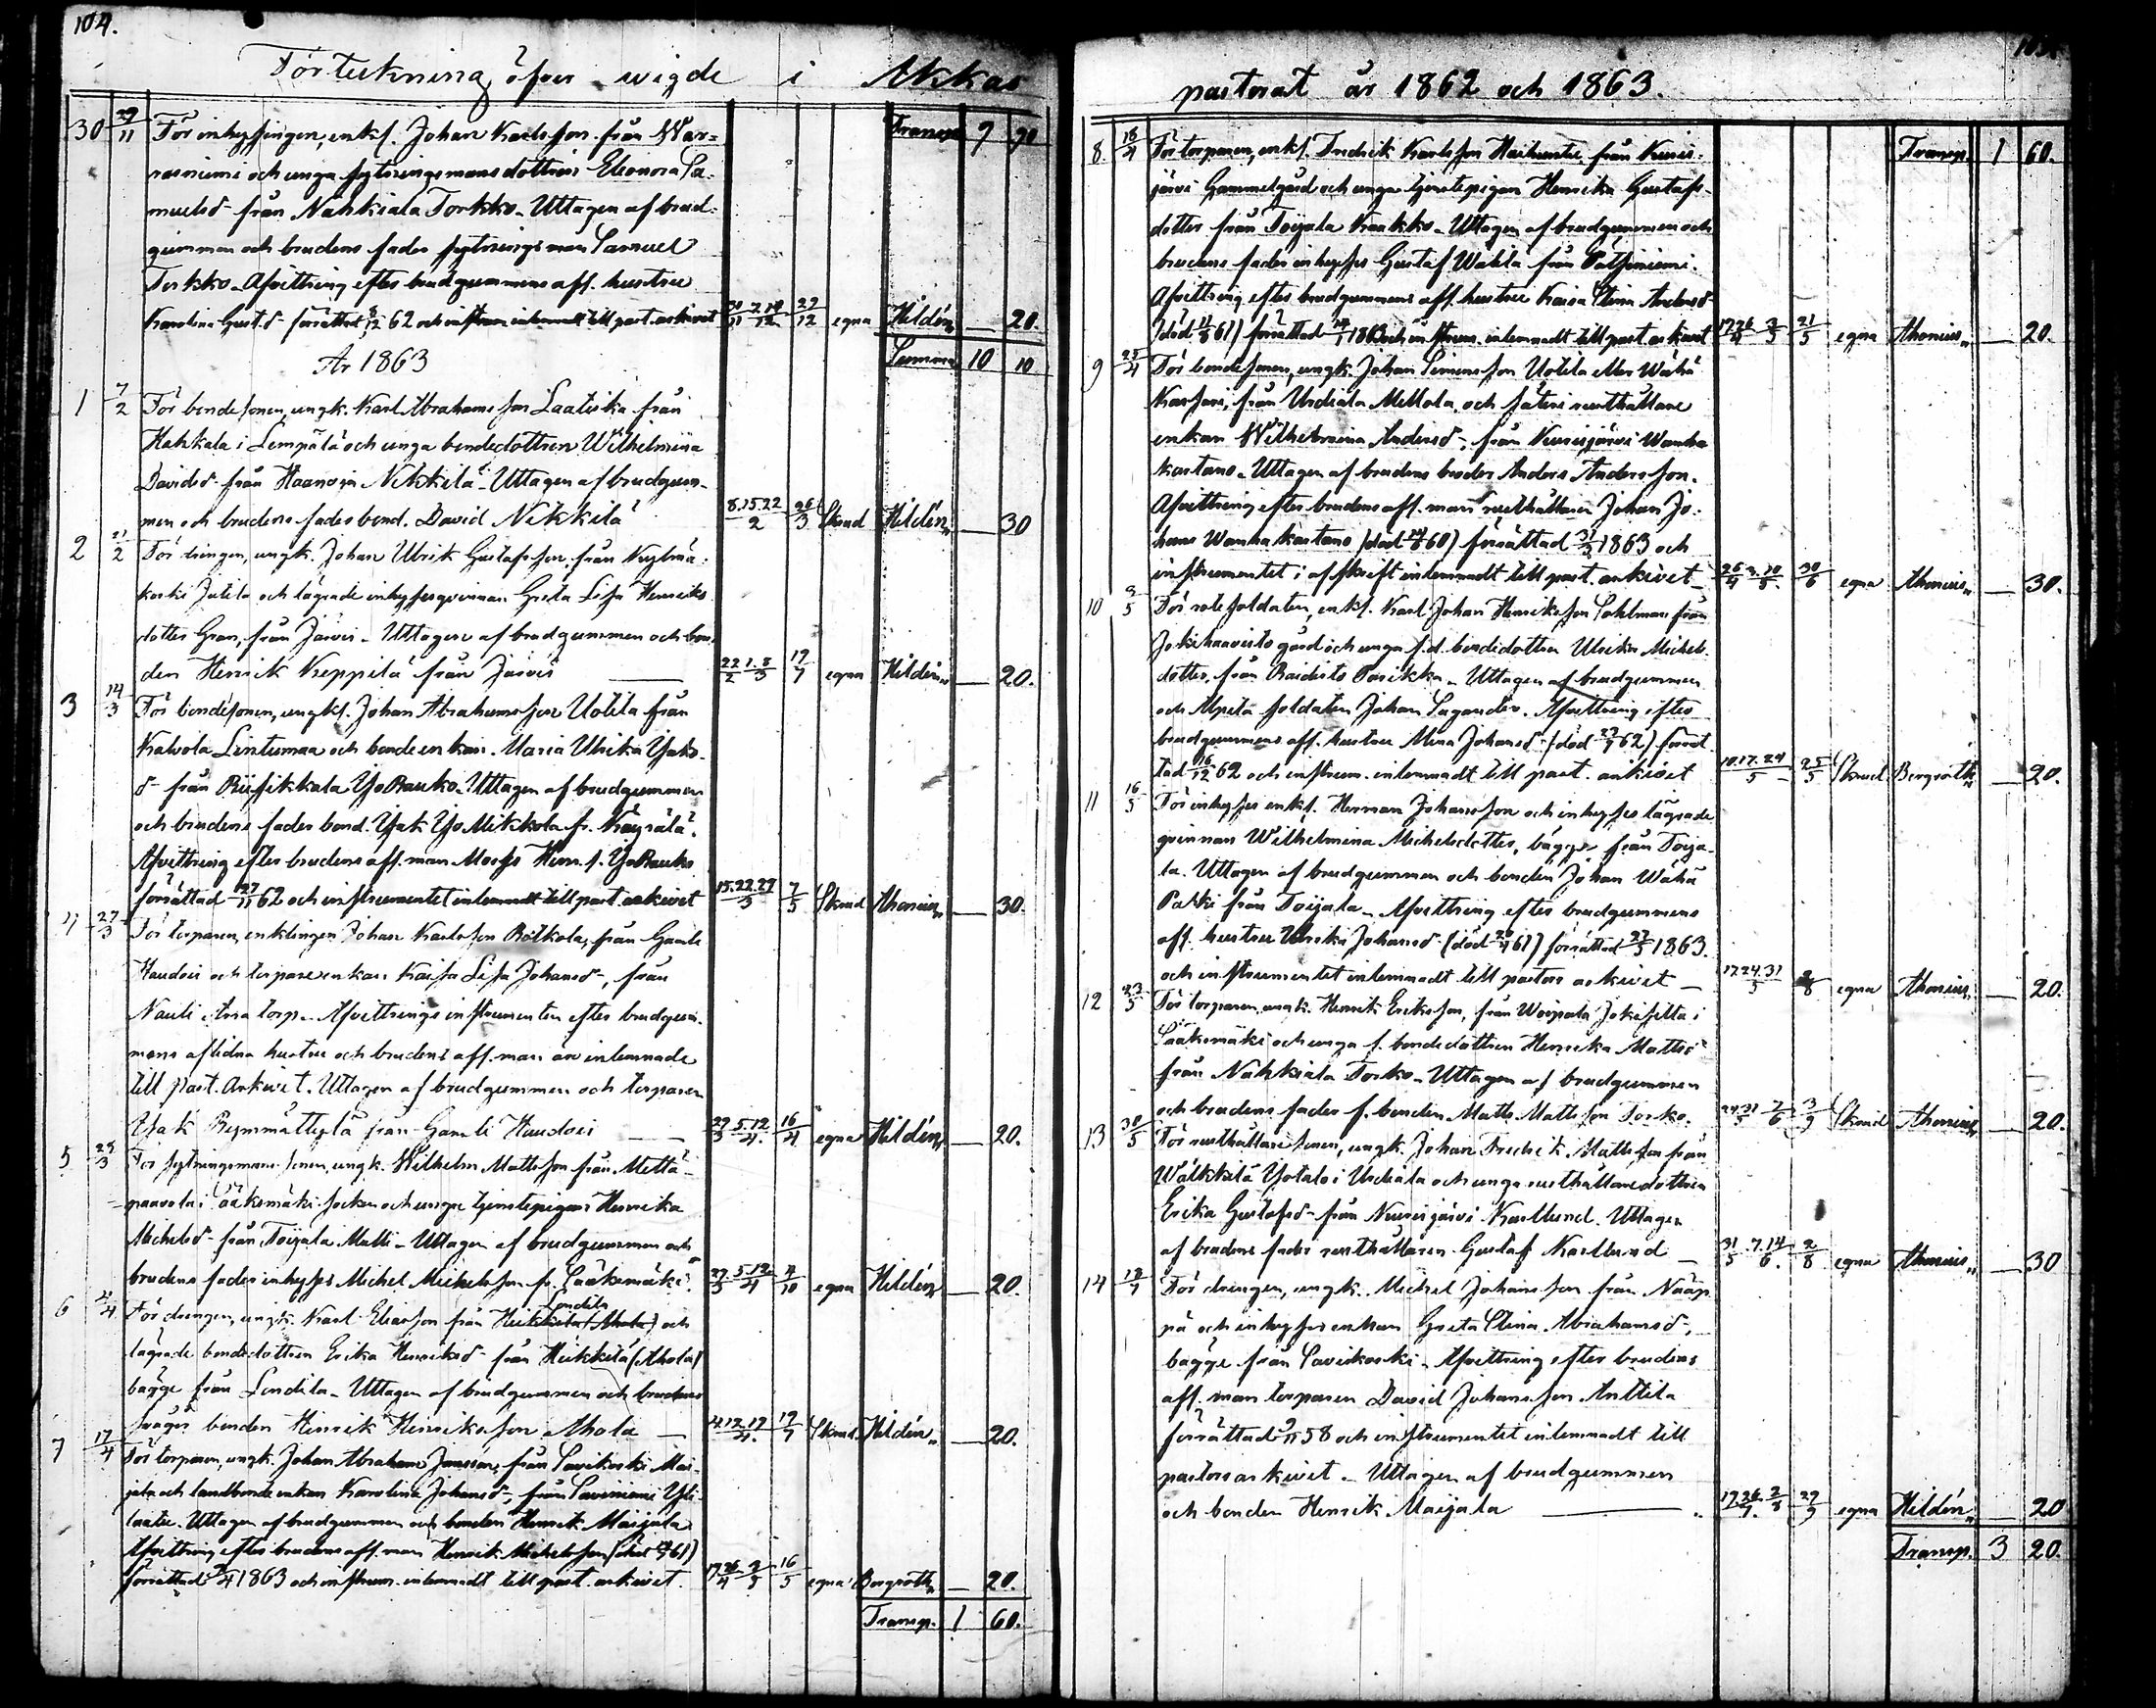 104.
Förteckning öfver wigde i Akkas
30 29/11 För inhysingen, enkl. Johan Karlsson från War- Transp. 9 90
rasniemi och unga sytningsmans dottren Eleonora Sa-
muelsd från Nahkiala Torkko. Uttagen af brud-
gumman och brudens fader sytningsman Samuel
Torkko. Afvittring efter brudgummens afl. hustru
Karolina Gust.d förrättad 62 och instrum. inlemnadt till past. arkivet 29/12 egna Hildén — 20.
År 1863 Summa 10 10
1 7/2 För bondesonen, ungk. Karl Abrahamsson Laatika från
Hakkala i Lempälä och unga bondedottren Wilhelmina
Davidsd från Haanoja Nikkilä. Uttagen af brudgum-
men och brudens fader bond. David Nikkilä 8.15.22/2 26/3 Skrud Hildén — 30
2 21/2 För drängen, ungk. Johan Ulrik Gustafsson från Kylmä-
koski Jutila och lägrade inhysesqvinnan Greta Lisa Henriks-
dotter Gran, från Jarvis. Uttagen af brudgummen och bon-
den Henrik Keppilä från Jarvis 22/2 1.8/3 egna Hildén — 20.
3 14/3 För bondesonen, ungkl. Johan Abrahamsson Uotila från
Kalvola Lintumaa och bondeenkan Maria Ulrika Isaks-
d från Riisikkala YoRauko. Uttagen af brudgummen
och brudens fader bond. Isak Yo Mikkola fr. Käyrälä.
Afvittring efter brudens afl. man Moses Henr.s. YoRauko
förrättad 27/11 62 och instrumentet inlemnadt till past. arkivet 15.22.29/3 7/5 Skrud Ahonius — 30.
4 27/3 För torparen, enklingen Johan Karlsson Rölkola, från Gamle
Haudois och torpareenkan Kaisa Lisa Johansd, från
Nauli Arra torp. Afvittrings instrumenten efter brudgum-
mens aflidna hustru och brudens afl. man äro inlemnade
till past. Arkivet. Uttagen af brudgummen och torparen
Isak Rymmättylä från Gamle Haudois 29/3 5.12/4 16/4 egna Hildén — 20.
5 29/3 För sytningsmanssonen, ungk. Wilhelm Mattsson från Mettä-
paavola i Sääksmäki socken och unga tjenstepigan Henrika
Michelsd från Toijala Matti. Uttagen af brudgummen och
brudens fader inhyses Michel Michelsson fr. Sääksmäki. 29/3 5.12/4 4/10 egna Hildén — 20.
6 4/4 För drängen, ungk. Karl Eliasson från Heikkilä (Ahola) och
lägrade bondedottren Erika Henriksd från Heikkilä (Ahola)
bägge från Sondila. Uttagen af brudgummen och brudens
svåger bonden Henrik Henriksson Ahola 4.12.19/4 Skrud. Hildén — 20.
7 17/4 För torparen, ungk. Johan Abraham Jansson, från Savikoski Mai-
jala och landbondeenkan Karolina Johansd, från Saviniemi Yli-
laatu. Uttagen af brudgummen och bonden Henrik Maijala
Afvittring efter brudens afl. man Henrik Michelsson (död 61)
förrättad 1863 och instrum. inlemnadt till past. arkivet. 19.26/4 3/5 16/5 egna Bergroth — 20.
Transp. 1 60.
pastorat år 1862 och 1863.
8. 18/4 För torparen, enkl. Fredrik Karlsson Haihunta från Kuris- Transp. 1 60.
järvi Gammelgård och unga tjenstepigan Henrika Gustafs-
dotter från Toijala Kaakko. Uttagen af brudgummen och
brudens fader inhyses Gustaf Wähla från Pätsiniemi.
Afvittring efter brudgummens afl. hustru Kaisa Stina Andersd
(död 61) förrättad 1863 och instrum. inlemnadt till past. arkivet 19.26/4 3/5 21/5 egna Ahonius — 20.
9 25/4 För bondesonen, ungk. Johan Simonsson Uotila eller Wähä
Karsari, från Urdiala Mellola, och säteri rusthållare
enkan Wilhelmina Andersd, från Nurisjärvi Wanha
kartano. Uttagen af brudens broder Anders Andersson.
Afvittring efter brudens afl. man rusthållaren Johan Jo-
hans Wanhakartano (död 60) förrättad 31/3 1863 och
instrumentet i afskrift inlemnadt till past. arkivet 26/4 3.10/5 30/6 egna Ahonius — 30.
10 9/5 För rotesoldaten, enkl. Karl Johan Henriksson Sahlman från
Jokihaavisto gård och unga f.d. bondedottren Ulrika Michels-
dotter, från Raidisto Parikka. Uttagen af brudgummen
och Alpeta soldaten Johan Sagander. Afvittring efter
brudgummens afl. hustru Mina Johansd (död 62) förrät-
tad 16/12 62 och instrum. inlemnadt till past. arkivet 10.17.24/5 25/5 Skrud Bergroth — 20.
11 16/5 För inhyses enkl. Herman Johansson och inhyses lägrade
qvinnan Wilhelmina Michelsdotter, bägge från Toija-
la. Uttagen af brudgummen och bonden Johan Wähä
Pakki från Toijala. Afvittring efter brudgummens
afl. hustru Ulrika Johansd (död 61) förrättad 1863.
och instrumentet inlemnadt till pastors arkivet 17.24.31/5 egna Ahonius — 20.
12 23/5 För torparen, ungk. Henrik Eriksson, från Woipala Jokisilta i
Sääksmäki och unga f. bondedottren Henrika Mattsd
från Nahkiala Torko. Uttagen af brudgummen
och brudens fader f. bonden Matts Mattsson Torko. 24.31/5 7/6 3/9 Skrud Ahonius — 20.
13 30/5 För rusthållaresonen, ungk. Johan Fredrik Mattsson från
Wälkkilä Yotalo i Urdiala och unga rusthållaredottren
Erika Gustafsd från Nurisjärvi Karlberd. Uttagen
af brudens fader rusthållaren Gustaf Karlberd 31/5 7.14/6 2/8 egna Ahonius — 30
14 18/7 För drängen, ungk. Michel Johansson från Nääp-
pä och inhysesenkan Greta Stina Abrahamsd,
bägge från Savikoski. Afvittring efter brudens
afl. man torparen David Johansson Anttila
förrättad 58 och instrumentet inlemnadt till
pastorsarkivet. Uttagen af brudgummen
och bonden Henrik Maijala 19.26/7 2/8 27/9 egna Hildén — 20
Transp. 3 20.